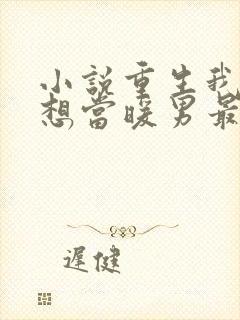 小說重生我
想當暖男最
遲健